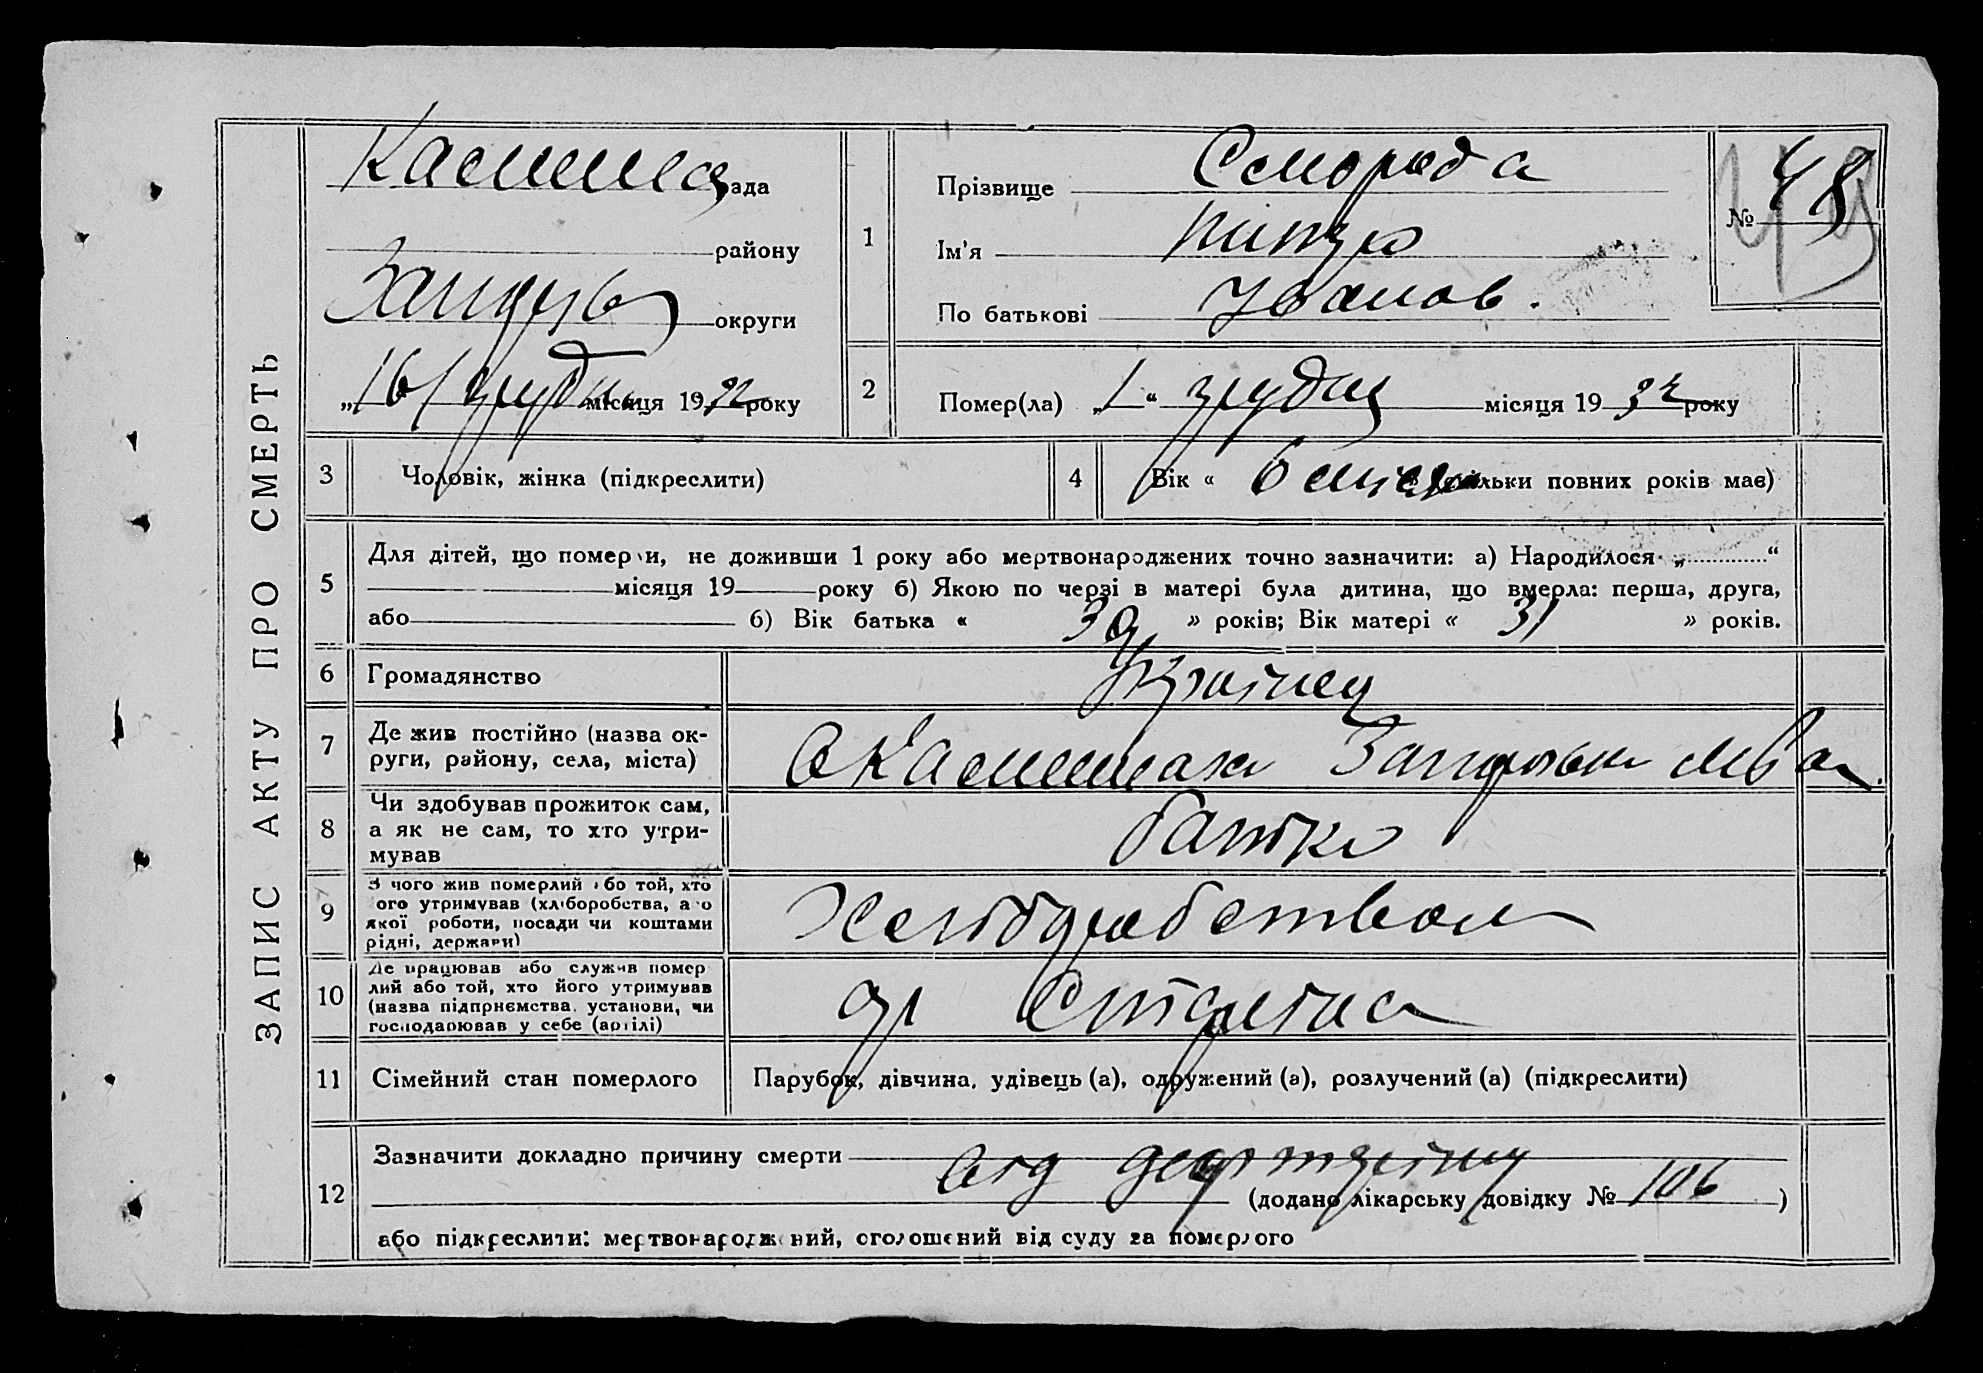 ЗАПИС АКТУ ПРО СМЕРТЬ
рада
району
округи
„16“ грудня місяця 1932 року
1
Прізвище Сморода
Ім'я
По батькові Іванов.
№ 48
49
2
Помер(ла) „1“ грудня місяця 1932 року
3
Чоловік, жінка (підкреслити)
4
Вік « 6 місяц (скільки повних років має)
5
Для дітей, що померли, не доживши 1 року або мертвонароджених точно зазначити: а) Народилося „ “
місяця 19 року б) Якою по черзі в матері була дитина, що вмерла: перша, друга,
або б) Вік батька « 39 » років; Вік матері « 31 » років.
6
Громадянство
Українец
7
Де жив постійно (назва ок-
руги, району, села, міста)
8
Чи здобував прожиток сам,
а як не сам, то хто утри-
мував
батько
9
З чого жив померлий або той, хто
його утримував (хліборобства, або
якої роботи, посади чи коштами
рідні, держави)
Хліборобством
10
Де працював або служив помер
лий або той, хто його утримував
(назва підприємства, установи, чи
господарював у себе (артілі)
ар Сталіна
11
Сімейний стан померлого
Парубок, дівчина, удівець (а), одружений (а), розлучений (а) (підкреслити)
12
Зазначити докладно причину смерти від дезинтерії
(додано лікарську довідку № 106 )
або підкреслити: мертвонароджений, оголошений від суду за померлого